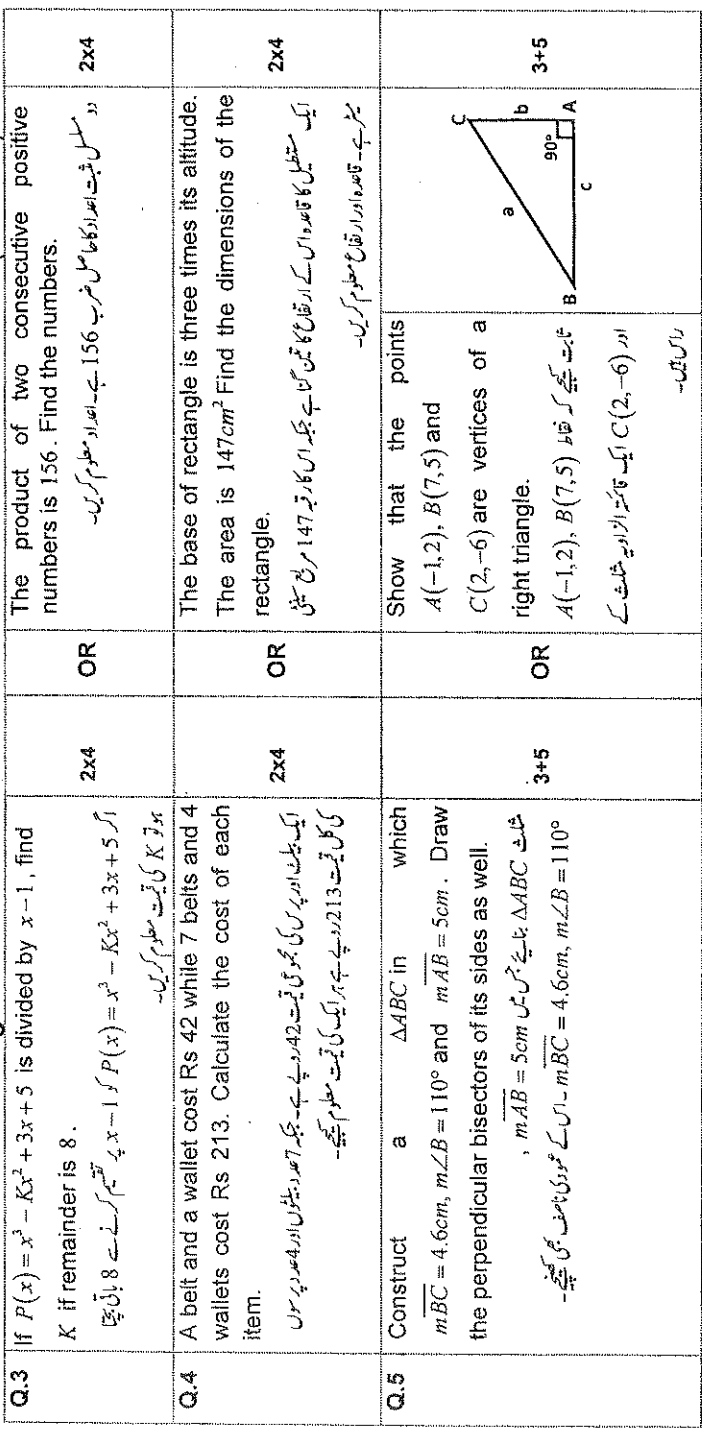 Q.3
If P(x) = x³ − Kx² + 3x + 5 is divided by x − 1, find
K if remainder is 8.
اگر P(x) = x³ − Kx² + 3x + 5 کو x − 1 پر تقسیم کرنے سے 8 باقی بچتا
ہو تو K کی قیمت معلوم کریں۔
2x4
OR
The product of two consecutive positive
numbers is 156. Find the numbers.
دو مسلسل مثبت اعداد کا حاصل ضرب 156 ہے۔ اعداد معلوم کریں۔
2x4
Q.4
A belt and a wallet cost Rs 42 while 7 belts and 4
wallets cost Rs 213. Calculate the cost of each
item.
ایک بیلٹ اور پرس کی مجموعی قیمت 42 روپے ہے۔ جبکہ 7 عدد بیلٹوں اور 4 عدد پرسوں
کی کل قیمت 213 روپے ہے ہر ایک کی قیمت معلوم کیجیے۔
2x4
OR
The base of rectangle is three times its altitude.
The area is 147cm² Find the dimensions of the
rectangle.
ایک مستطیل کا قاعدہ اس کے ارتفاع کا تین گنا ہے جبکہ اس کا رقبہ 147 مربع سینٹی
میٹر ہے۔ قاعدہ اور ارتفاع معلوم کریں۔
2x4
Q.5
Construct a ΔABC in which
mBC = 4.6cm, m∠B = 110° and mAB = 5cm. Draw
the perpendicular bisectors of its sides as well.
مثلث ΔABC بنایئے جس میں mAB = 5cm ,
mBC = 4.6cm, m∠B = 110°۔ اس کے عمودی ناصف بھی کھینچئے۔
3+5
OR
Show that the points
A(−1,2), B(7,5) and
C(2,−6) are vertices of a
right triangle.
ثابت کیجئے کہ نقاط A(−1,2), B(7,5)
اور C(2,−6) ایک قائمۃ الزاویہ مثلث کے
راس ہیں۔
C
a
b
90°
B
c
A
3+5